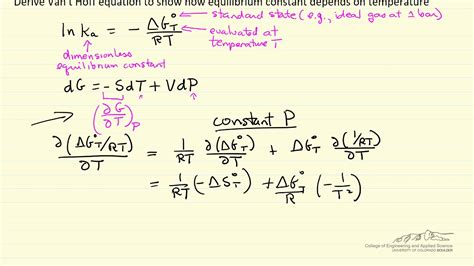 Derive Van't Hoff equation to show how equilibrium constant depends on temperature
ln Ka = - ΔG°T / RT
standard state (e.g., ideal gas at 1 bar)
evaluated at temperature T
dimensionless
equilibrium constant
dG = -SdT + VdP
(∂G/∂T)P
constant P
∂(ΔG°T/RT)/∂T = 1/RT ∂(ΔG°T)/∂T + ΔG°T ∂(1/RT)/∂T
= 1/RT (-ΔS°T) + ΔG°T/R (-1/T²)
College of Engineering and Applied Science
UNIVERSITY OF COLORADO BOULDER